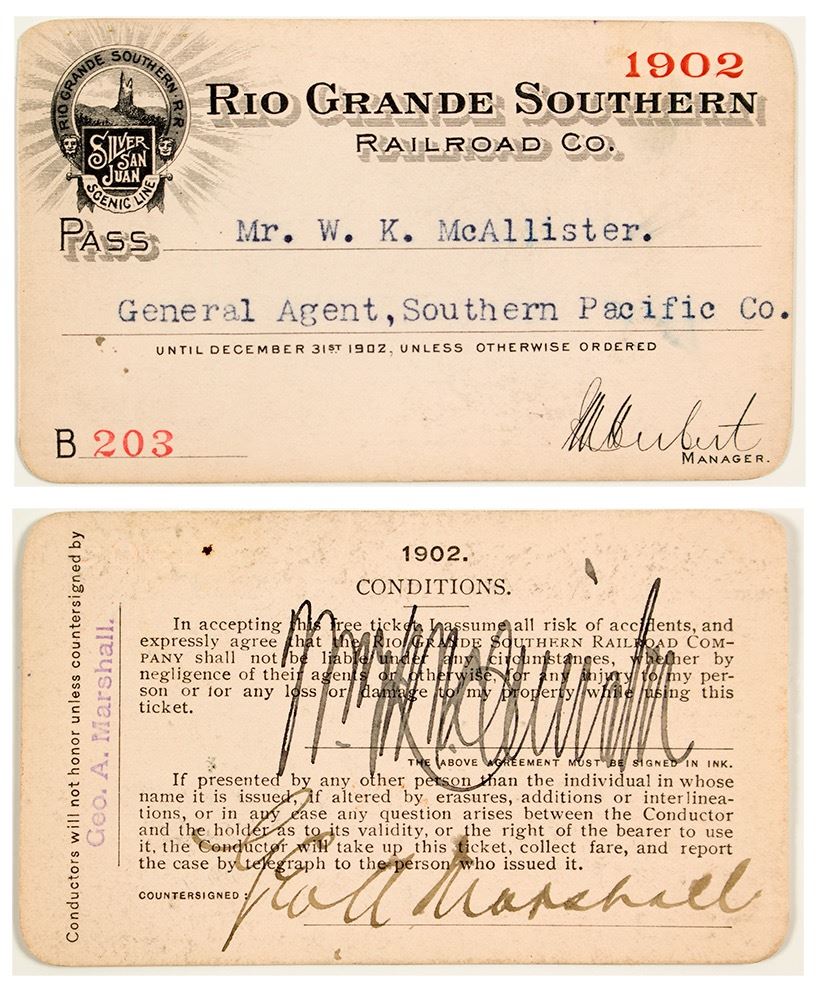 1902
RIO GRANDE SOUTHERN R.R.
SILVER
SAN
JUAN
SCENIC LINE
RIO GRANDE SOUTHERN
RAILROAD CO.
PASS Mr. W. K. McAllister.
General Agent,Southern Pacific Co.
UNTIL DECEMBER 31ST 1902, UNLESS OTHERWISE ORDERED
B 203
Herbert
MANAGER.
Conductors will not honor unless countersigned by
Geo. A. Marshall.
1902.
CONDITIONS.
In accepting this free ticket I assume all risk of accidents, and
expressly agree that the RIO GRANDE SOUTHERN RAILROAD COM-
PANY shall not be liable under any circumstances, whether by
negligence of their agents or otherwise, for any injury to my per-
son or for any loss or damage to my property while using this
ticket.
THE ABOVE AGREEMENT MUST BE SIGNED IN INK.
If presented by any other person than the individual in whose
name it is issued, if altered by erasures, additions or interlinea-
tions, or in any case any question arises between the Conductor
and the holder as to its validity, or the right of the bearer to use
it, the Conductor will take up this ticket, collect fare, and report
the case by telegraph to the person who issued it.
COUNTERSIGNED:
Geo A Marshall